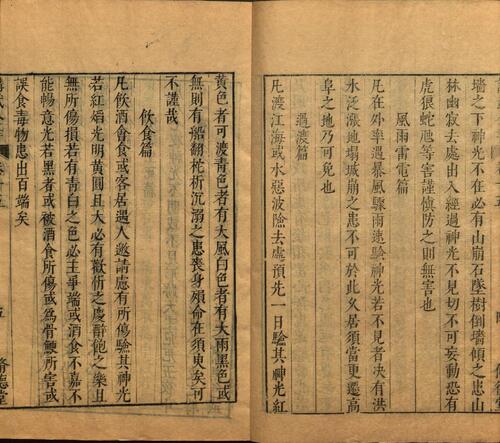 墻之下神光不見者必有山崩石墜樹倒墻傾之患山
林幽寂去處出入經過神光不見切不可妄動恐有
虎狼蛇虺等害謹慎防之則無害也
風雨雷電篇
凡在外卒遇暴風驟雨速驗神光若不見者决有洪
水泛漲地塌城崩之患不可於此久居須當更遷高
阜之地乃可免也
過渡篇
凡渡江海或水惡波險去處預先一日驗其神光紅
黃色者可渡青色者有大風白色者有大雨黑色或
無則有船翻枕折沉溺之患喪身殞命在須臾矣可
不謹哉
飲食篇
凡飲酒會食或客居遇人邀請慮有所傷驗其神光
若紅焰光明黃圓且大必有歡忻之慶醉飽之樂且
無所傷損若有青白之色必主爭端或酒食不嘉不
能暢意光若黑者或被酒食所傷或為骨鯁所害或
誤食毒物患出百端矣
五